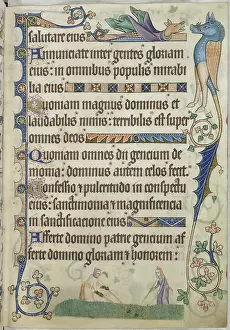 salutare eius
Annunciate inter gentes gloriam
eius: in omnibus populis mirabi
lia eius
Quoniam magnus dominus et
laudabilis nimis: terribilis est super
omnes deos
Quoniam omnes dii gencium de
monia: dominus autem celos fecit
Confessio et pulcritudo in conspectu
eius: sanctimonia et magnificencia
in sanctificacione eius
Afferte domino patrie gencium af
ferte domino gloriam et honorem: